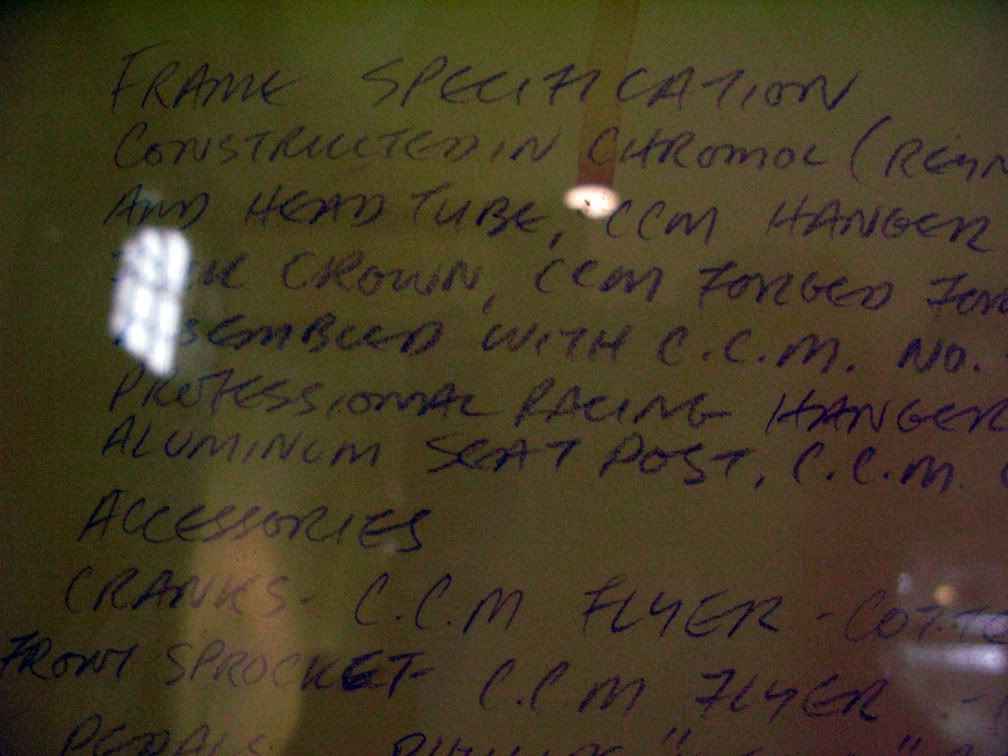 FRAME SPECIFICATION
CONSTRUCTED IN CHROMOL (REYN
AND HEAD TUBE, CCM HANGER
CROWN, CCM FORGED FOR
ASSEMBLED WITH C.C.M. NO.
PROFESSIONAL RACING HANGER
ALUMINUM SEAT POST, C.C.M.
ACCESSORIES
CRANKS - C.C.M FLYER - COTTE
FRONT SPROCKET - C.C.M FLYER -
PEDALS